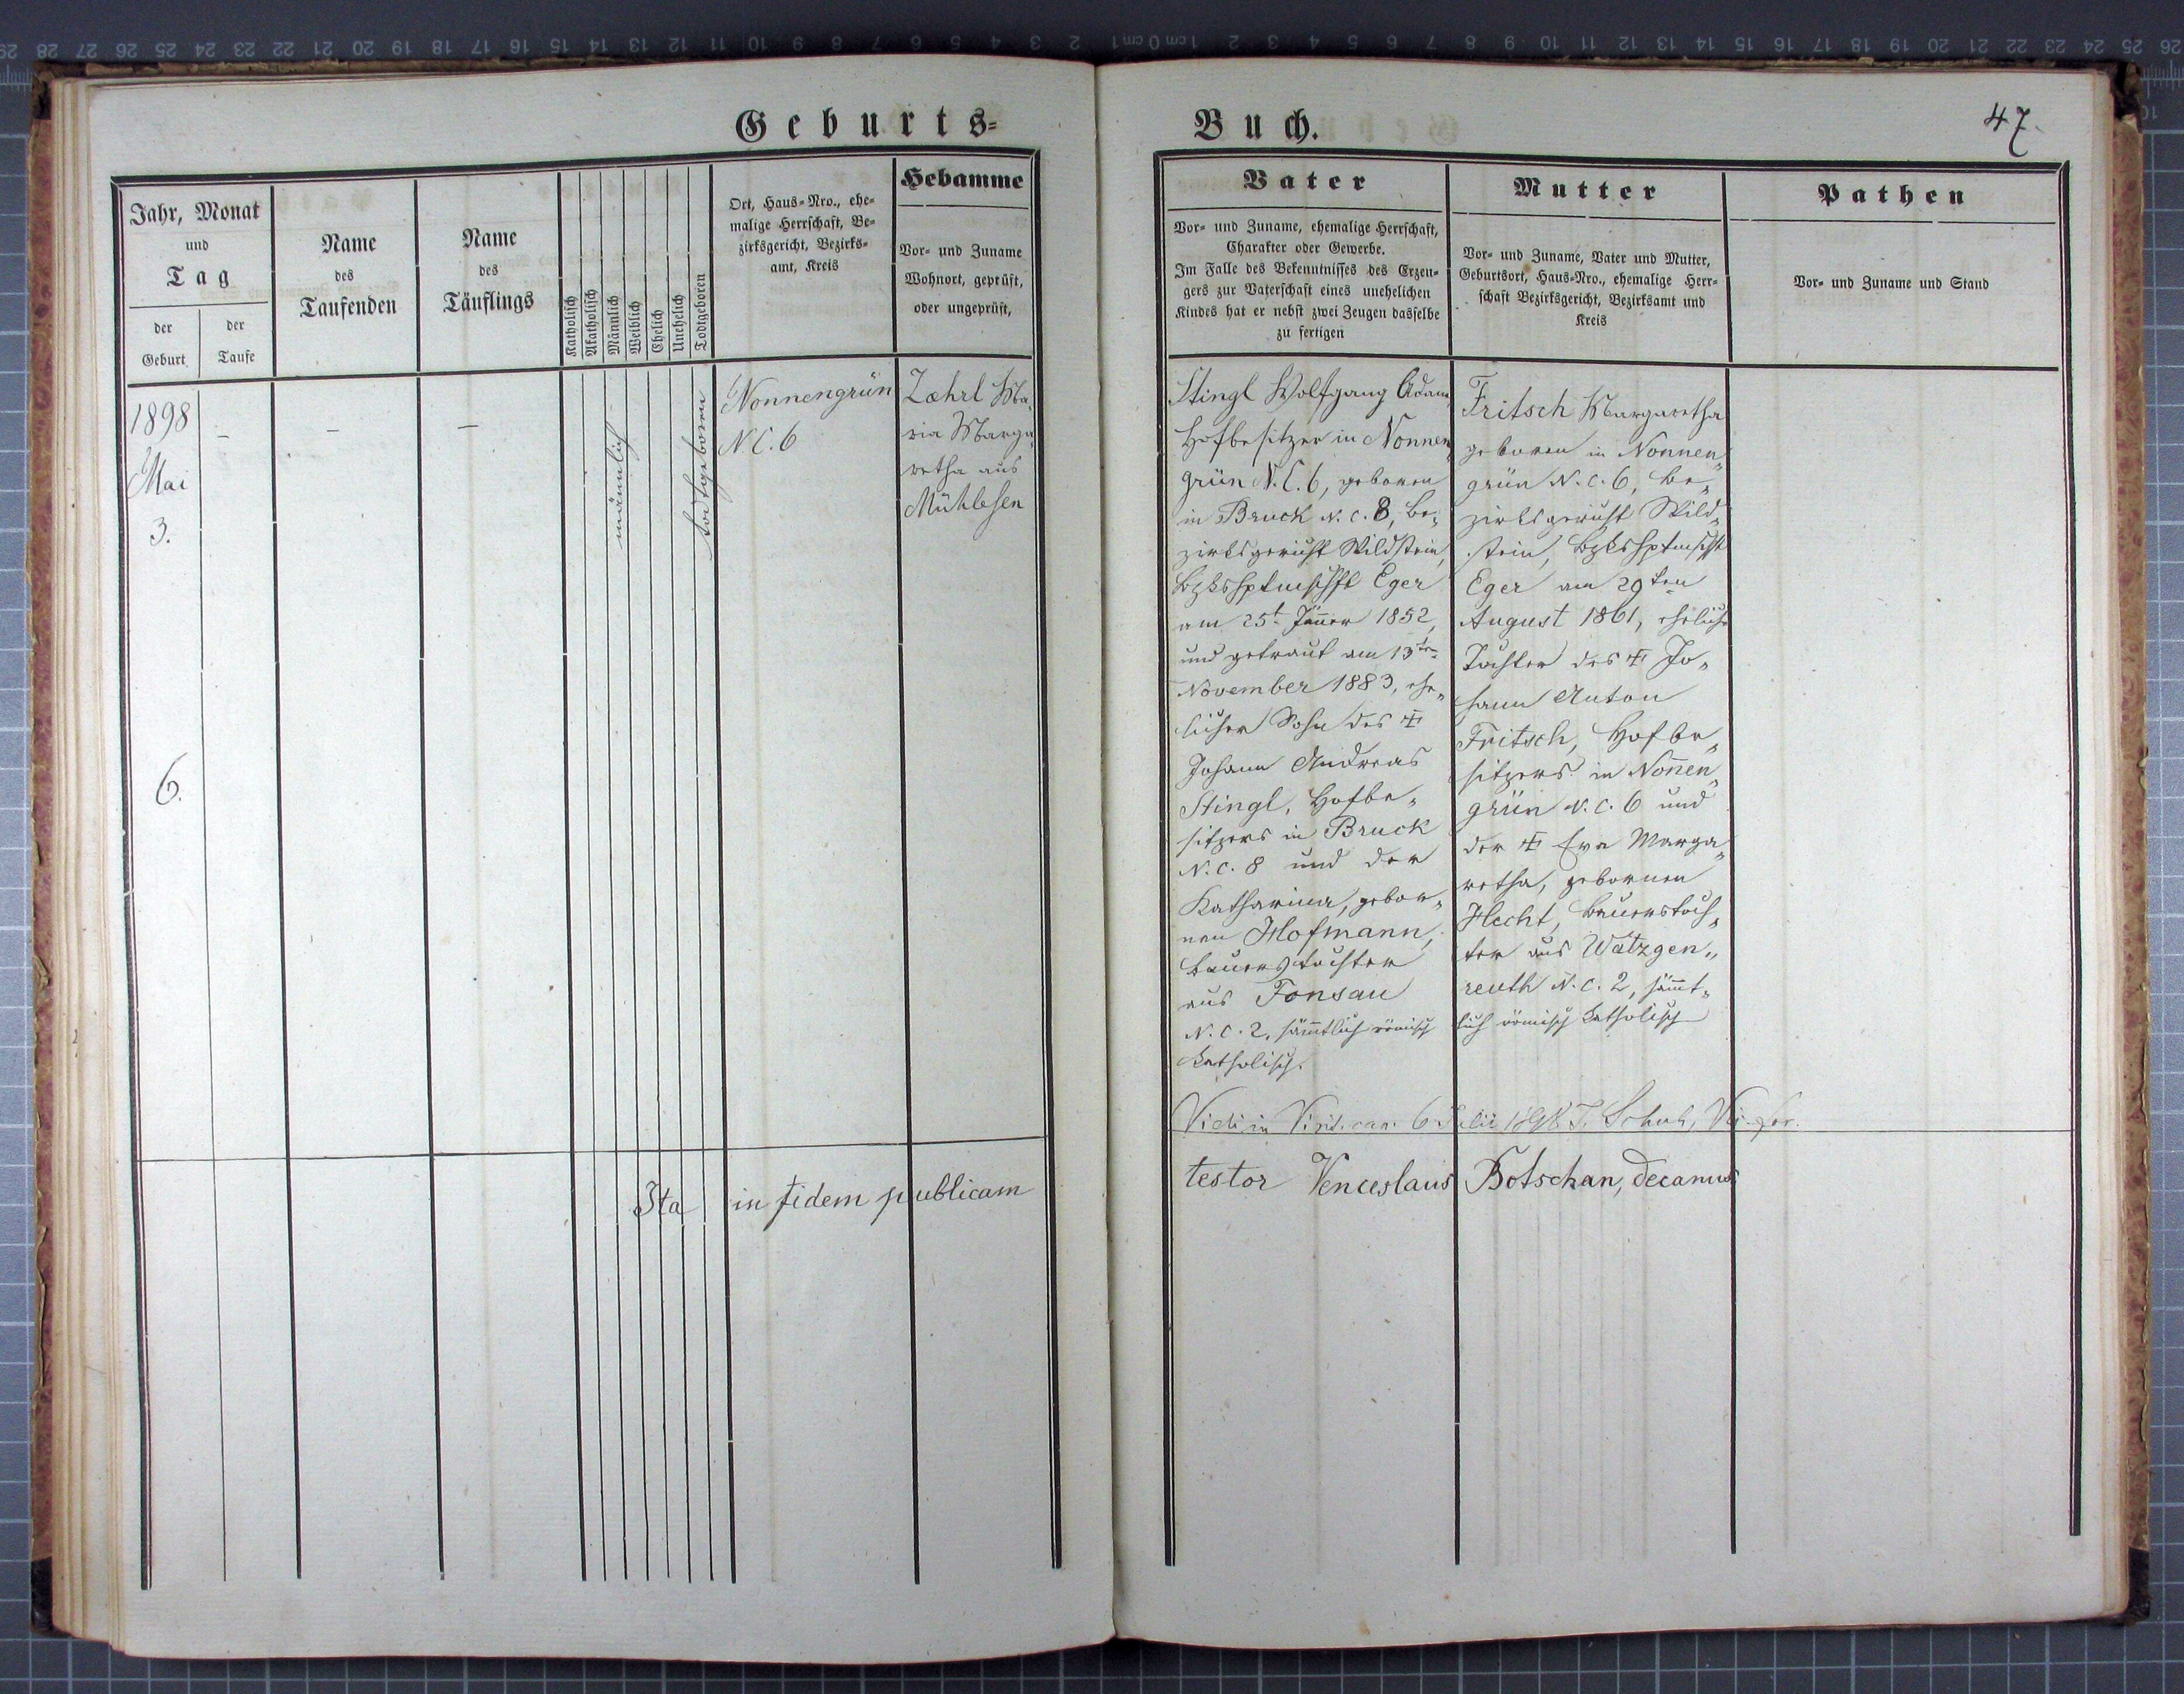 Geburts-
Jahr, Monat
und
Tag
der
Geburt
der
Taufe
Name
des
Taufenden
Name
des
Täuflings
Katholisch
Akatholisch
Männlich
Weiblich
Ehelich
Unehelich
Todtgeboren
Ort, Haus-Nro., ehe-
malige Herrschaft, Be-
zirksgericht, Bezirks-
amt, Kreis
Hebamme
Vor- und Zuname
Wohnort, geprüft,
oder ungeprüft,
1898
Mai
3.
6.
–
–
–
männlich
todtgeboren
Nonnengrün
N.C. 6
Zæhrl Ma„
ria Marga„
retha aus
Mühlesen
Ita in fidem publicam
Buch.
47.
Vater
Vor- und Zuname, ehemalige Herrschaft,
Charakter oder Gewerbe.
Im Falle des Bekenntnisses des Erzeu-
gers zur Vaterschaft eines unehelichen
Kindes hat er nebst zwei Zeugen dasselbe
zu fertigen
Mutter
Vor- und Zuname, Vater und Mutter,
Geburtsort, Haus-Nro., ehemalige Herr-
schaft Bezirksgericht, Bezirksamt und
Kreis
Pathen
Vor- und Zuname und Stand
Stingl Wolfgang Adam,
Hofbesitzer in Nonnen„
grün N.C. 6, geboren
in Bruck N.C. 8, Be„
zirksgericht Wildstein,
Bzkshptmschft Eger
am 25t. Jänner 1852,
und getraut am 13ten
November 1883, ehe„
licher Sohn des ‡
Johann Andreas
Stingl, Hofbe„
sitzers in Bruck
N.C. 8 und der
Katharina, gebor„
nen Hofmann,
Bauerstochter
aus Fonsau
N.C. 2, sämmtlich römisch
katholisch.
Fritsch Margaretha
geboren in Nonnen„
grün N.C. 6, Be„
zirksgericht Wild„
stein, Bzkshptmschft
Eger am 29ten
August 1861, eheliche
Tochter des ‡ Jo„
hann Anton
Fritsch, Hofbe„
sitzers in Non̄en„
grün N.C. 6 und
der ‡ Eva Marga„
retha, gebornen
Hecht, Bauerstoch„
ter aus Watzgen„
reuth N.C. 2, säm̄t„
lich römisch katholisch
Vidi in Visit. can. 6 Julii 1898
testor Venceslaus Botschan, decanus